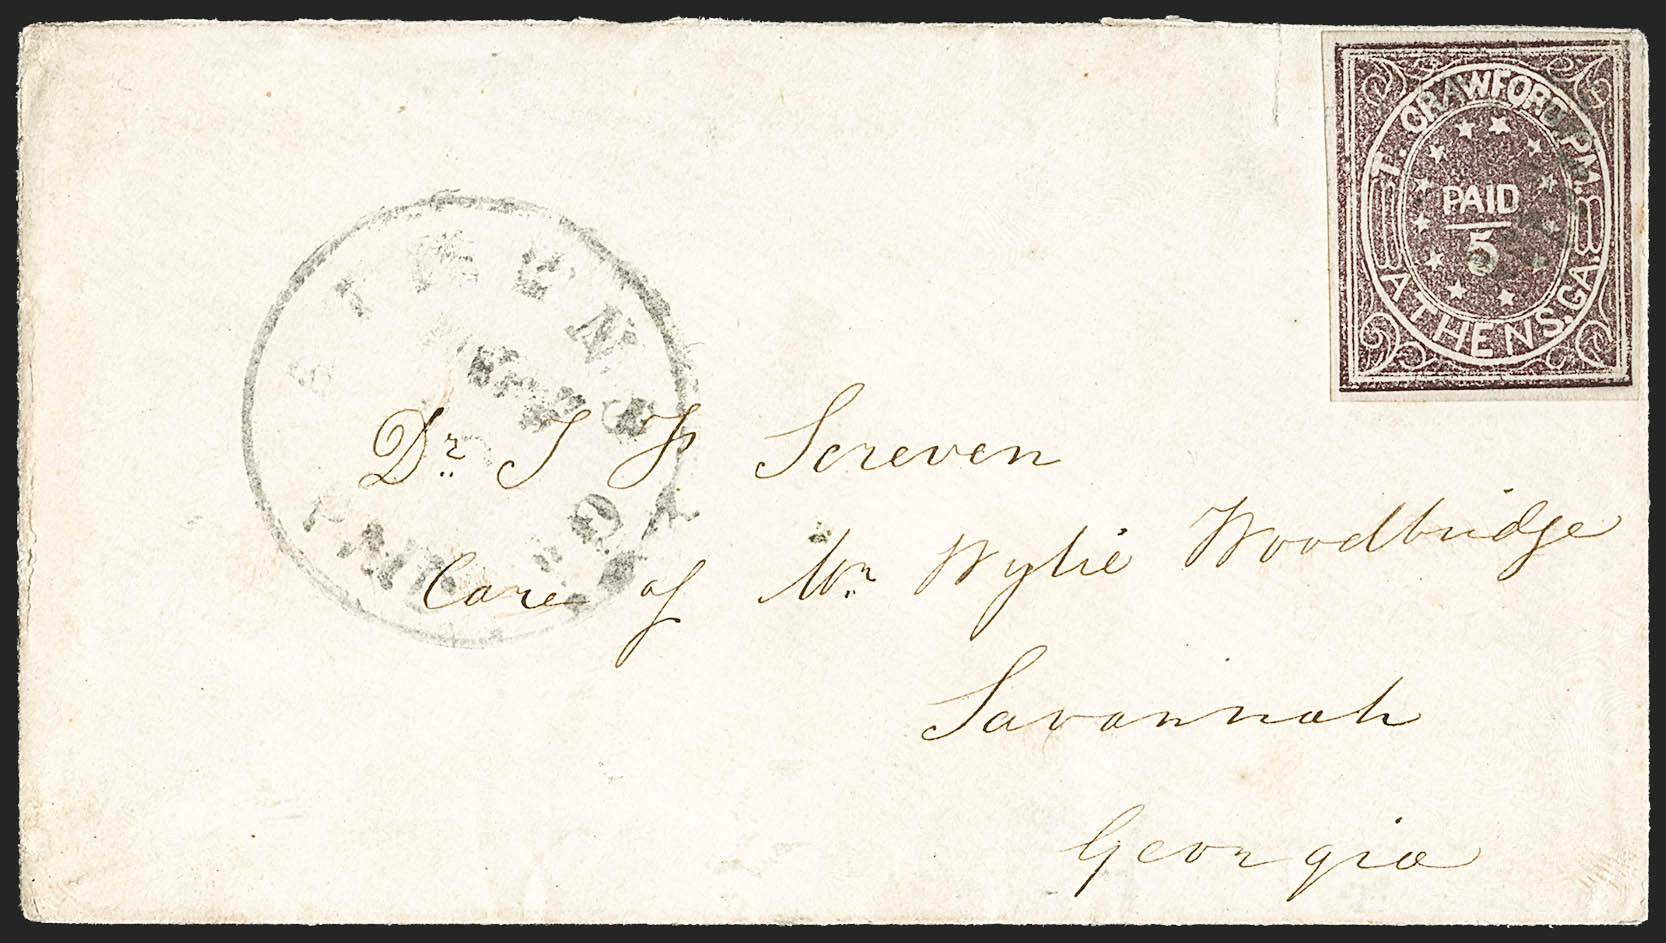 T. CRAWFORD, P.M.
PAID
5
ATHENS, GA.
ATHENS
GA
PAID
Dr. J P Screven
Care of Mr. Wylie Woodbridge
Savannah
Georgia